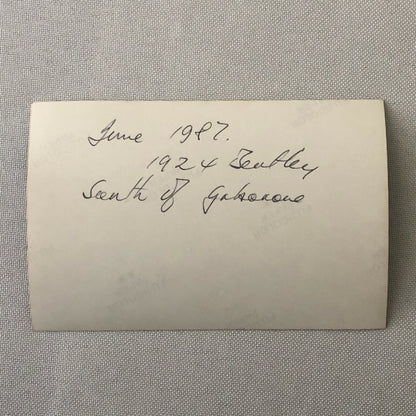 June 1987.
1924 Bentley
South of Gaborone